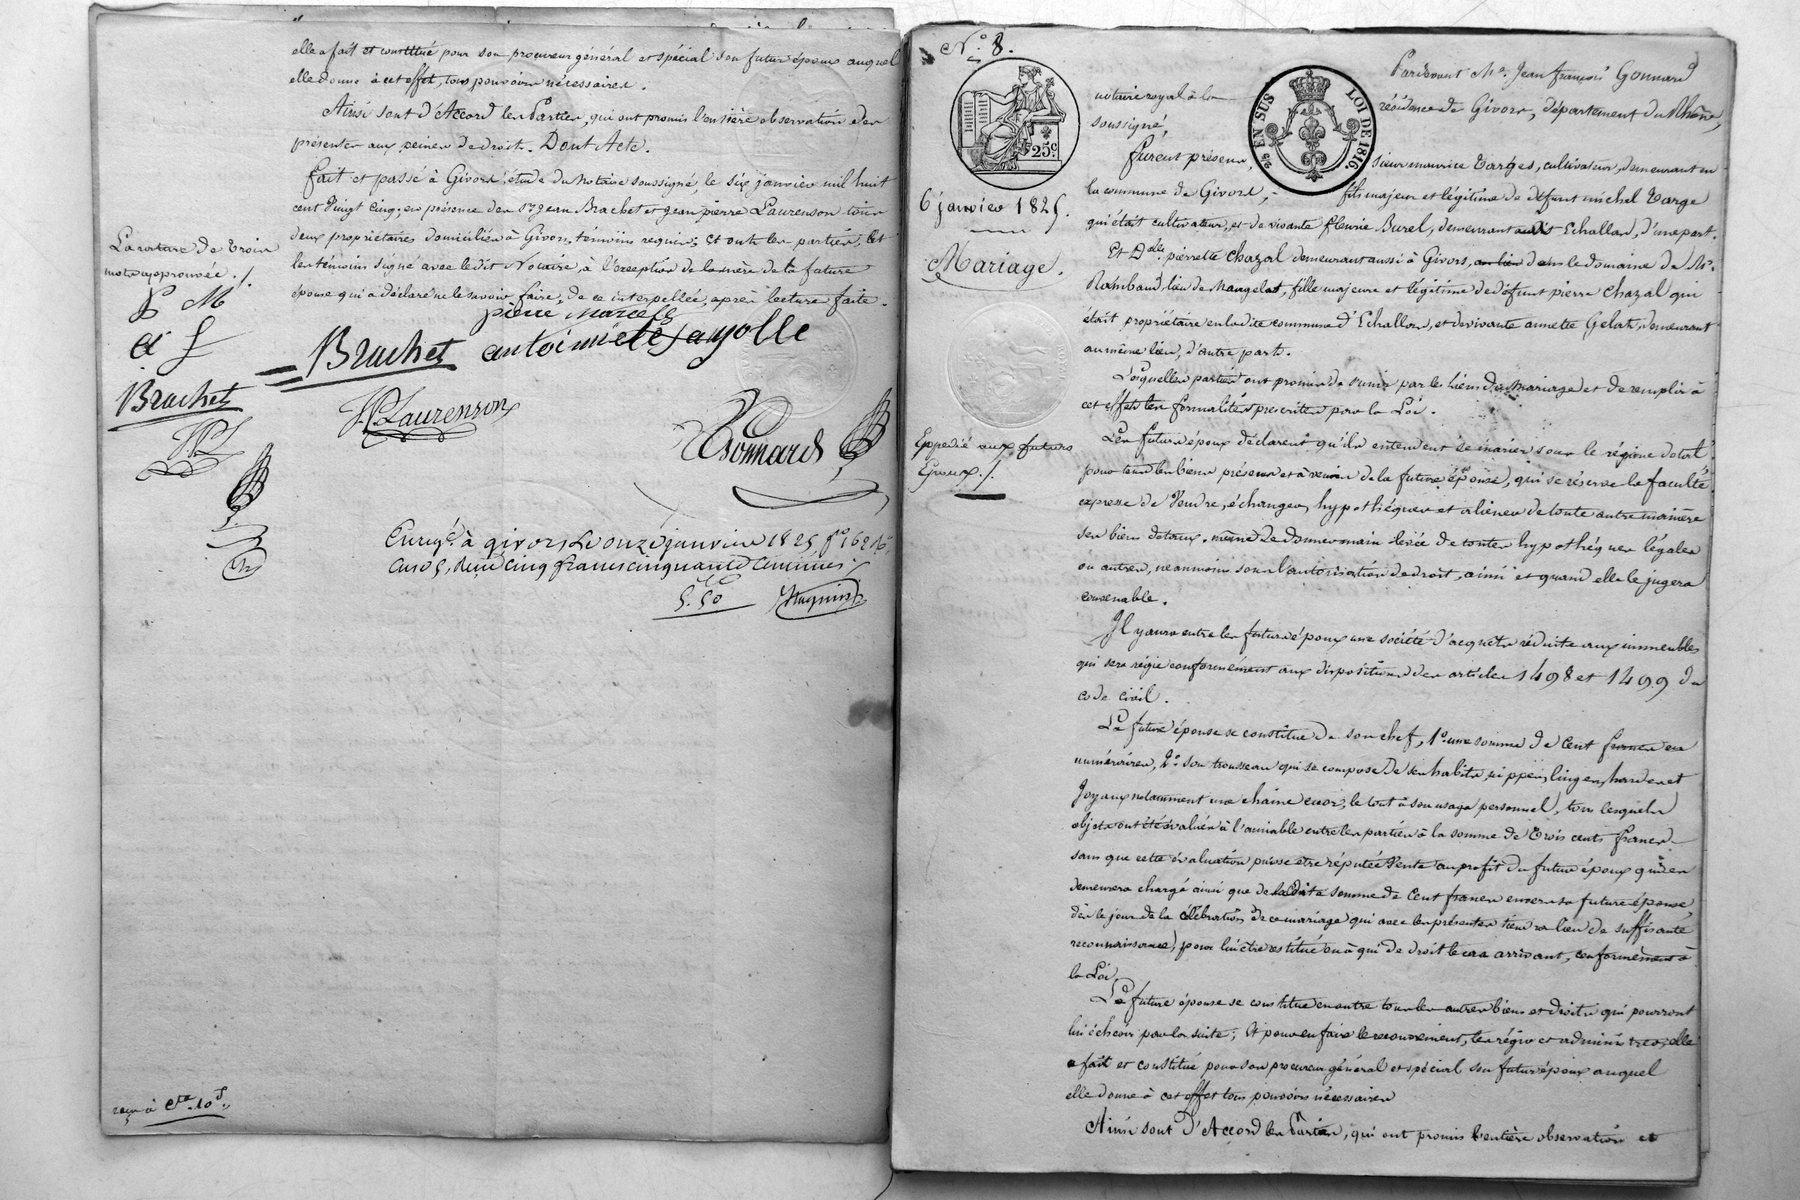 elle a fait et constitué pour son procureur général et spécial son futur époux auquel
elle donne à cet effet, tous pouvoirs nécessaires.
Ainsi sont d'Accord les Parties, qui ont promis l'entière observation des
présentes aux peines de droit. Dont Acte.
Fait et passé à Givors, étude du notaire soussigné, le six janvier mil huit
cent vingt cinq, en présence des Srs jean Brachet et jean pierre Laurenson tous
deux propriétaires domiciliés à Givors, témoins requis; et ont les parties, et
les témoins signé avec ledit Notaire, à l'exception de la mère de la future
épouse qui a déclaré ne le savoir faire, de ce interpellée, après lecture faite.
La rature de trois
mots approuvée ./.
P M
a f
Brachet
JPL
pierre Marcel
Brachet antoinete fayolle
J.P. Laurenson
Gonnard
Enregé à givors le onze janvier 1825, fo 162 Ro
Case 5, reçu cinq francs cinquante centimes
5. 50
reçu à cte 10 f
No 8.
Pardevant Me Jean françois Gonnard
notaire royal à la résidence de Givors, département du Rhône,
soussigné,
25c
25 EN SUS LOI DE 1816.
furent présens sieur maurice Targes, cultivateur, demeurant en
la commune de Givors, fils majeur et légitime de défunt michel Targe
6 janvier 1825.
qui était cultivateur, et de vivante fleurie Burel, demeurant Echallas, d'une part.
Mariage.
Et Dlle pierrette Chazal demeurant aussi à Givors, au lieu dans le domaine de Mr
Rambaud lieu de Mangelas, fille majeure et légitime de défunt pierre Chazal qui
était propriétaire en ladite commune d'Echallas, et de vivante annette Gelas, demeurant
au même lieu, d'autre part.
Lesquelles parties ont promis de s'unir par les liens du mariage et de remplir à
cet effet les formalités prescrites par la Loi.
Expédié aux futurs
Epoux ./.
Les futurs époux déclarent qu'ils entendent se marier sous le régime dotal
pour tous les biens présens et à venir de la future épouse, qui se réserve la faculté
expresse de Vendre, échanger, hypothéquer et aliéner de toute autre manière
ses biens dotaux, même de donner main levée de toutes hypothéques légales
ou autres, néanmoins sous l'autorisation de droit, ainsi et quand elle le jugera
convenable.
Il y aura entre les futurs époux une société d'acquets réduite aux immeubles
qui sera régie conformément aux dispositions des articles 1498 et 1499 du
code civil.
La future épouse se constitue de son chef, 1o une somme de cent francs en
numéraires, 2o son trousseau qui se compose de ses habits, nippes, linges, hardes et
Joyaux notamment une chaine en or, le tout à son usage personnel, tous lesquels
objets ont été évalués à l'amiable entre les parties à la somme de Trois cents francs
sans que cette évaluation puisse etre réputée Vente au profit du futur époux qui en
demeurera chargé ainsi que de ladite somme de Cent francs envers sa future épouse
dès le jour de la célébration de ce mariage qui avec les présentes tiendra lieu de suffisante
reconnaissance, pour lui être restitué ou à qui de droit le cas arrivant, conformément à
la Loi.
La future épouse se constitue en outre tous les autres biens et droits qui pourront
lui échoir par la suite; Et pour en faire le recouvrement, les régir et administrer, elle
a fait et constitué pour son procureur général et spécial son futur époux auquel
elle donne à cet effet tous pouvoirs nécessaires
Ainsi sont d'Accord les Parties, qui ont promis l'entière observation et